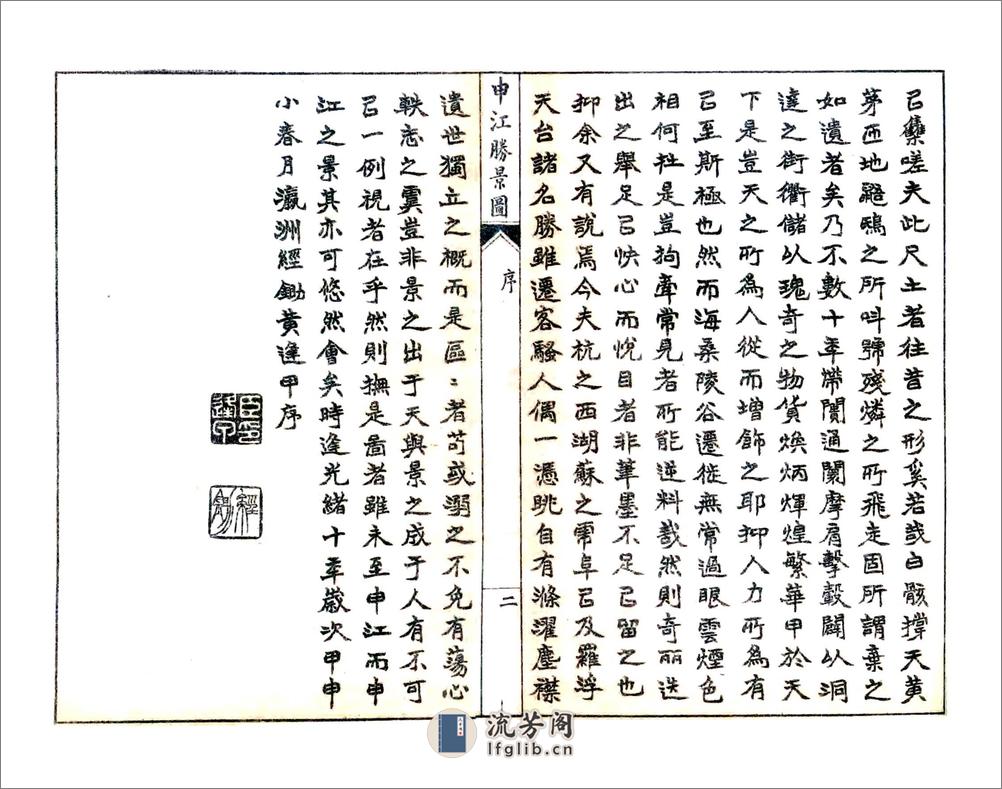 已龢嗟夫此尺土者往昔之形奚若哉白骸撐天黃
茅匝地鼯鴞之所呌號殘燐之所飛走固所謂棄之
如遺者矣乃不數十年帶闠通闤摩肩擊轂闢以洞
達之街衢儲以瑰奇之物貨煥炳煇煌繁華甲於天
下是豈天之所為人從而增飾之耶抑人力所為有
已至斯極也然而海桑陵谷遷徙無常過眼雲煙色
相何拄是豈拘牽常見者所能逆料哉然則奇丽迭
出之舉足已快心而悅目者非筆墨不足已留之也
抑余又有說焉今夫杭之西湖蘇之虎阜已及羅浮
天台諸名勝雖遷客騷人偶一憑眺自有滌濯塵襟
申江勝景圖
序
二
遺世獨立之概而是區〻者苟或溺之不免有蕩心
軼志之虞豈非景之出于天與景之成于人有不可
已一例視者在乎然則撫是啚者雖未至申江而申
江之景其亦可悠然會矣時逢光緒十年歲次甲申
小春月瀛洲經鋤黃逢甲序
臣印
逢甲
經
鋤
流芳阁
lfglib.cn